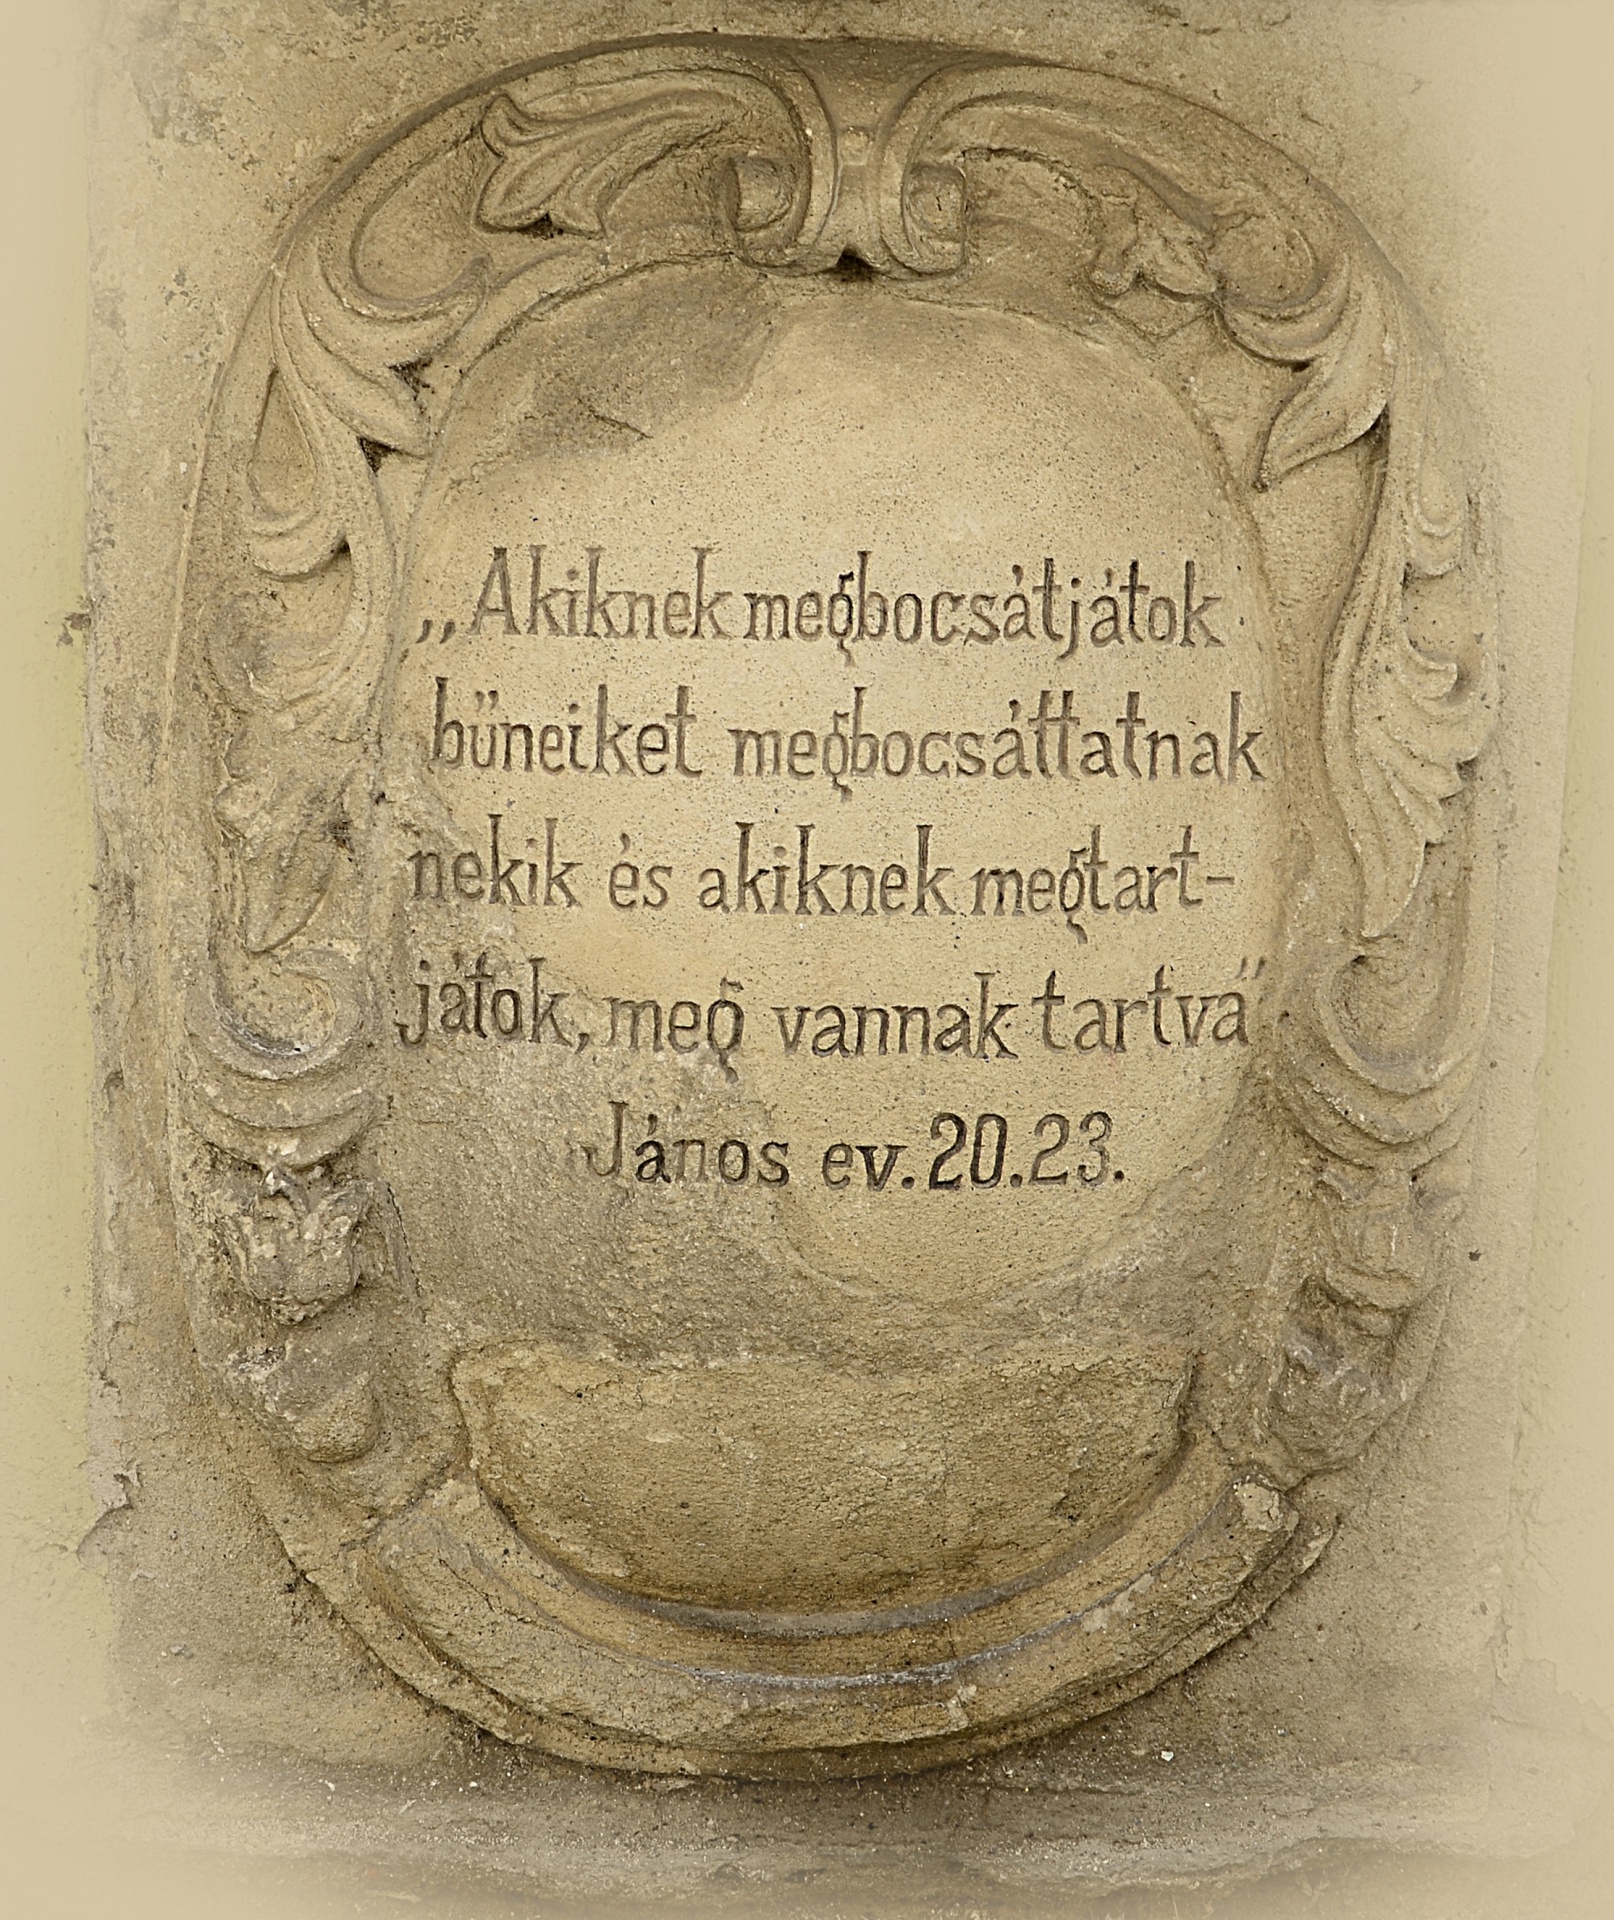 „Akiknek megbocsátjátok
bűneiket megbocsáttatnak
nekik és akiknek megtart-
játok, meg vannak tartva"
János ev. 20.23.